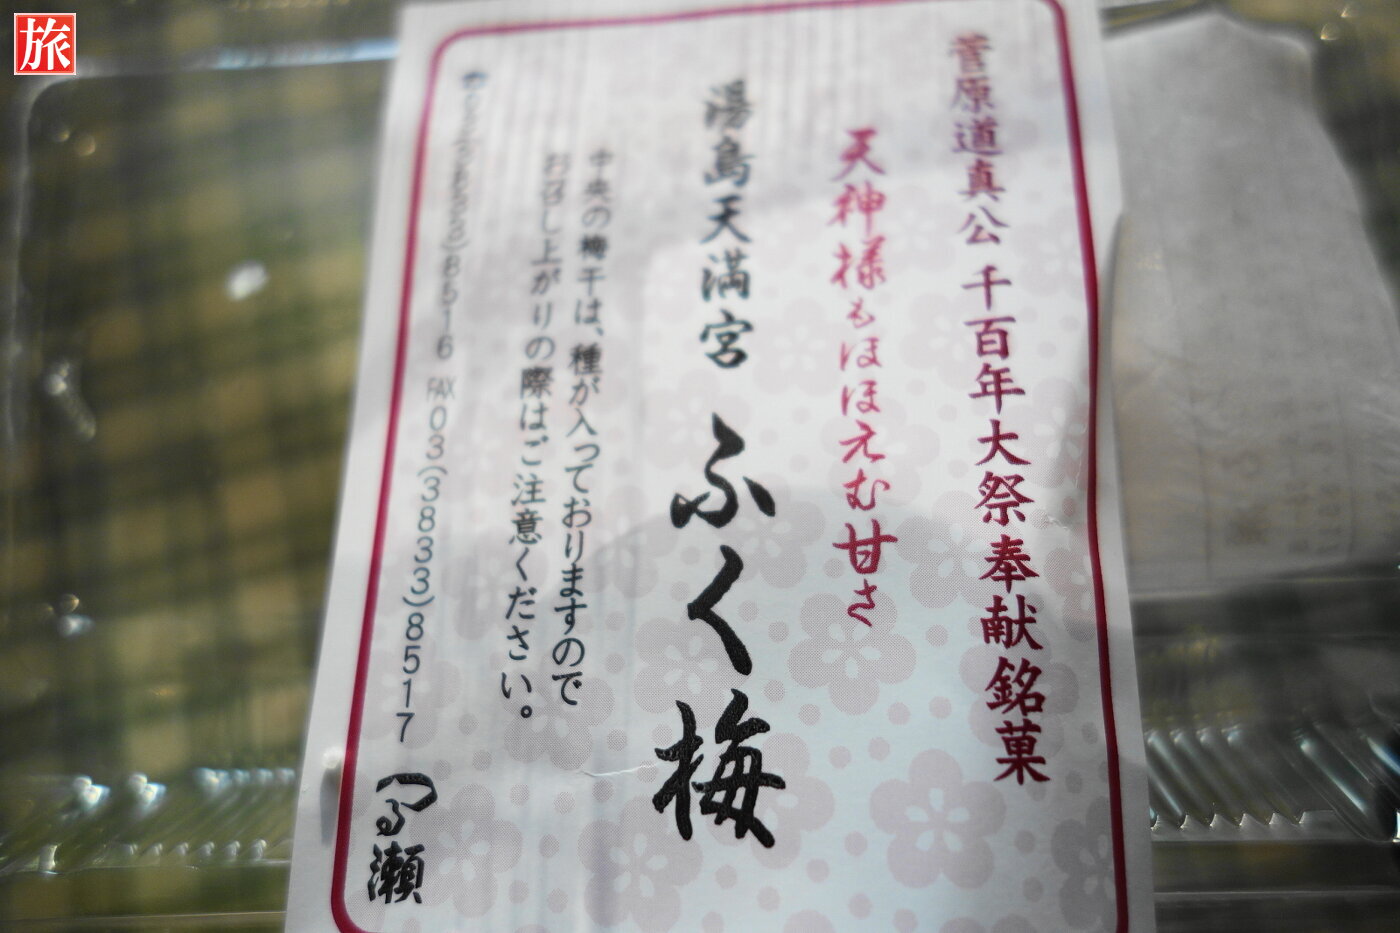 旅
菅原道真公 千百年大祭奉献銘菓
天神様もほほえむ甘さ
湯島天満宮 ふく梅
中央の梅干は、種が入っておりますので
お召し上がりの際はご注意ください。
8516 FAX 03(3833)8517
つる瀬